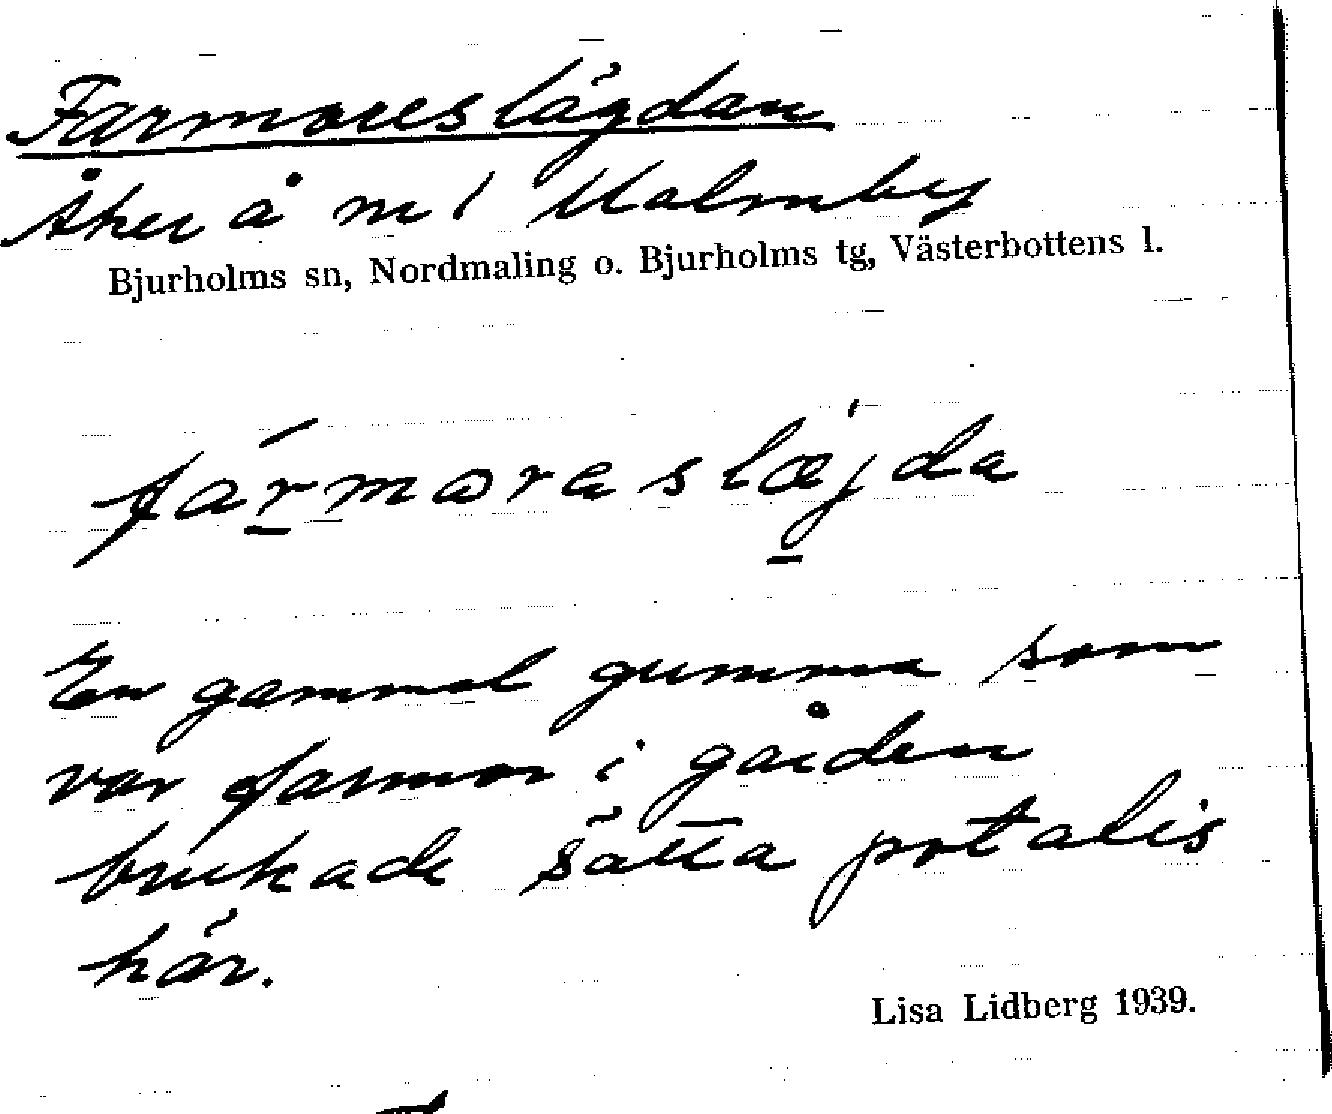 Farmoreslägdan
Åker å n:r 1 Malmby
Bjurholms sn, Nordmaling o. Bjurholms tg, Västerbottens l.
fármoraslæjda
En gammal gumma som
var farmor i gården
brukade sätta potatis
här.
Lisa Lidberg 1939.